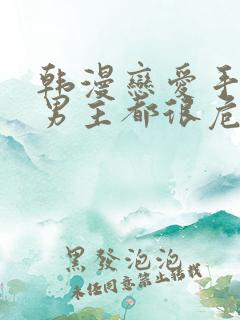 韩漫戀愛手
男主都很危
黑發泡泡
未经同意禁止转载